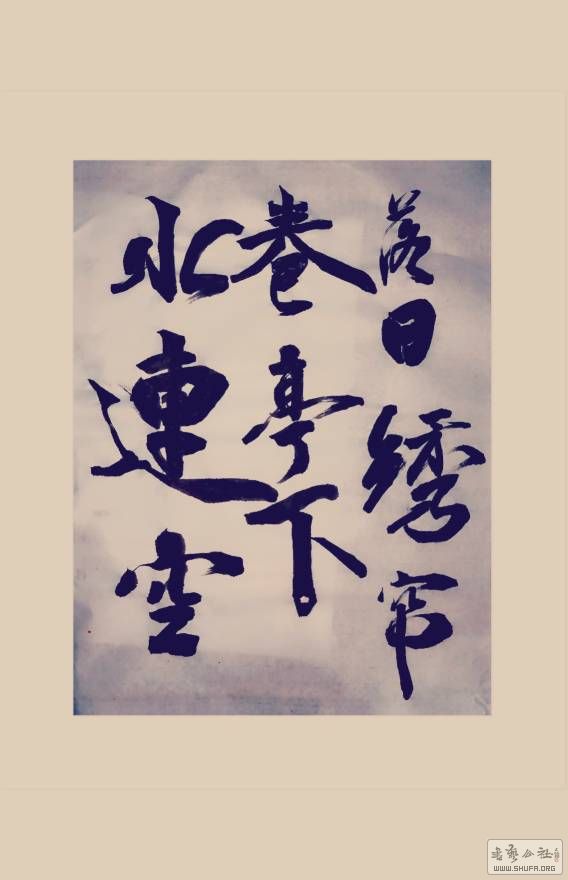 落日绣帘
卷亭下
水連空
書藝公社
WWW.SHUFA.ORG